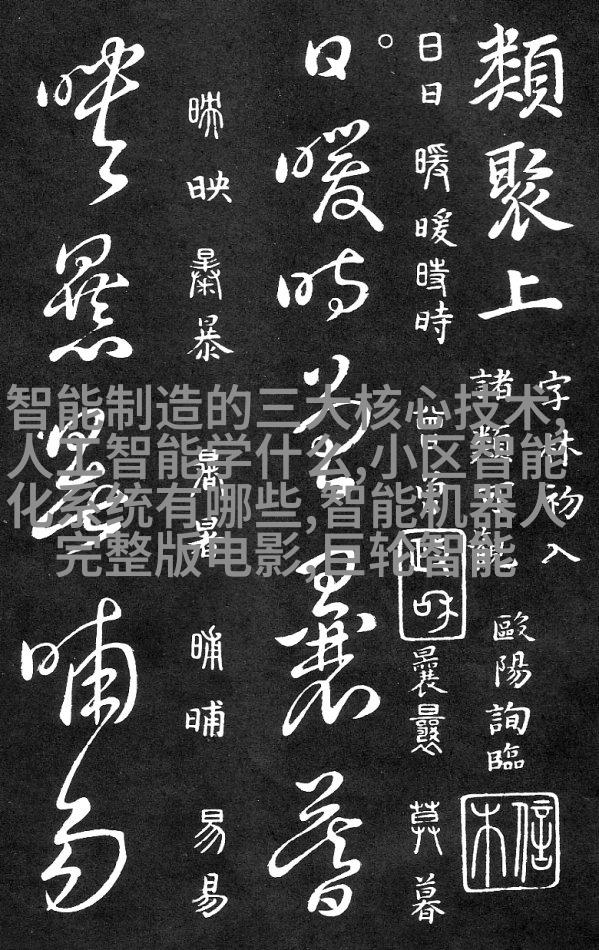 智能制造的三大核心技术,
人工智能学什么,小区智能
化系统有哪些,智能机器人
完整版电影,巨轮智能
類聚上
字林初入
諸類
歐陽詢臨
信本
日日 暖暖 時時
莫暮
日暖時
暮
映 暴 暑 晡晡 易易
映暴暑晡易